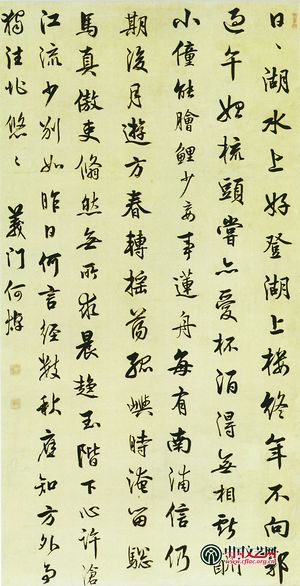 日〻湖水上好登湖上樓終年不向郭
過午始梳頭嘗亦愛杯酒得無相獻酬
小僮能膾鯉少妾事蓮舟每有南浦信仍
期後月遊方春轉搖蕩孤興時淹留驄
馬真傲吏翛然無所求晨趨玉階下心許滄
江流少別如昨日何言經數秋應知方外事
獨往非悠〻 義門何焯
中国文艺网
www.cflac.org.cn